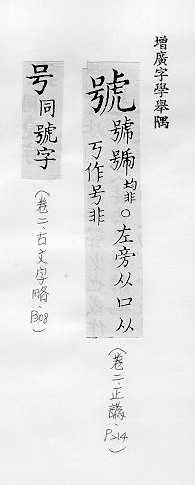 增廣字學舉隅
號 均非○左旁从口从
丂作号非
(卷二、正譌、P214)
号同號字
(卷二、古文字略、P308)